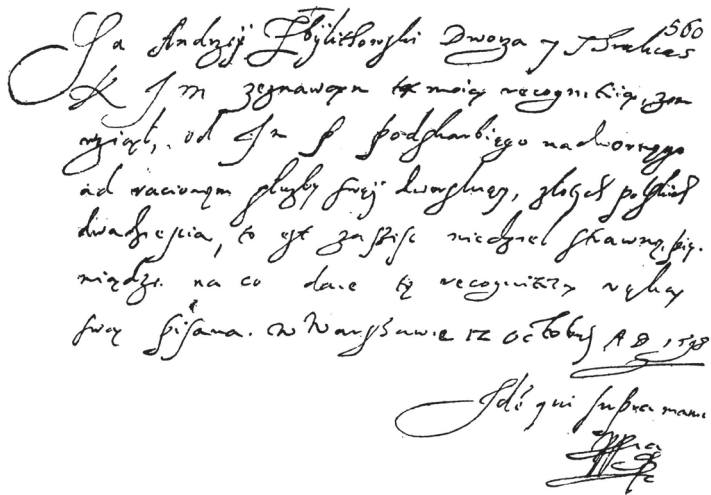 560
Ja Andrzey Zbylitowski Dworza y
K J M zeznawam tą moią recognitią, zem
wziął, od Jm P podskarbiego nadwornego
ad racionem służby swey dworskiey, złotych polskich
dwadziescia, to est za szesc niedziel strawnę, pię-
niądze. na co daię tę recognitią ręką
swą pisaną. W Warszawie 12 Octobris A D 1598
Idē qui supra manu
ppria